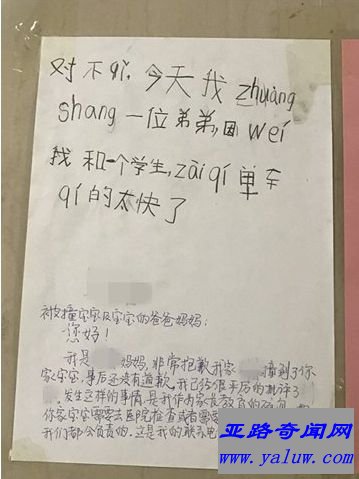 对不qǐ,今天我zhuàng
shang一位弟弟,因wéi
我和一个学生,zài qí单车
qí的太快了
被撞宝宝及宝宝的爸爸妈妈:
您好!
我是 妈妈,非常抱歉我家 撞到了你
家宝宝,事后还没有道歉。我已经很严厉的批评了
。发生这样的事情,是我作为家长教育的
你家宝宝需要去医院检查或者需要
我们都会负责的。这是我的联系电
亚路奇闻网
www.yaluw.com